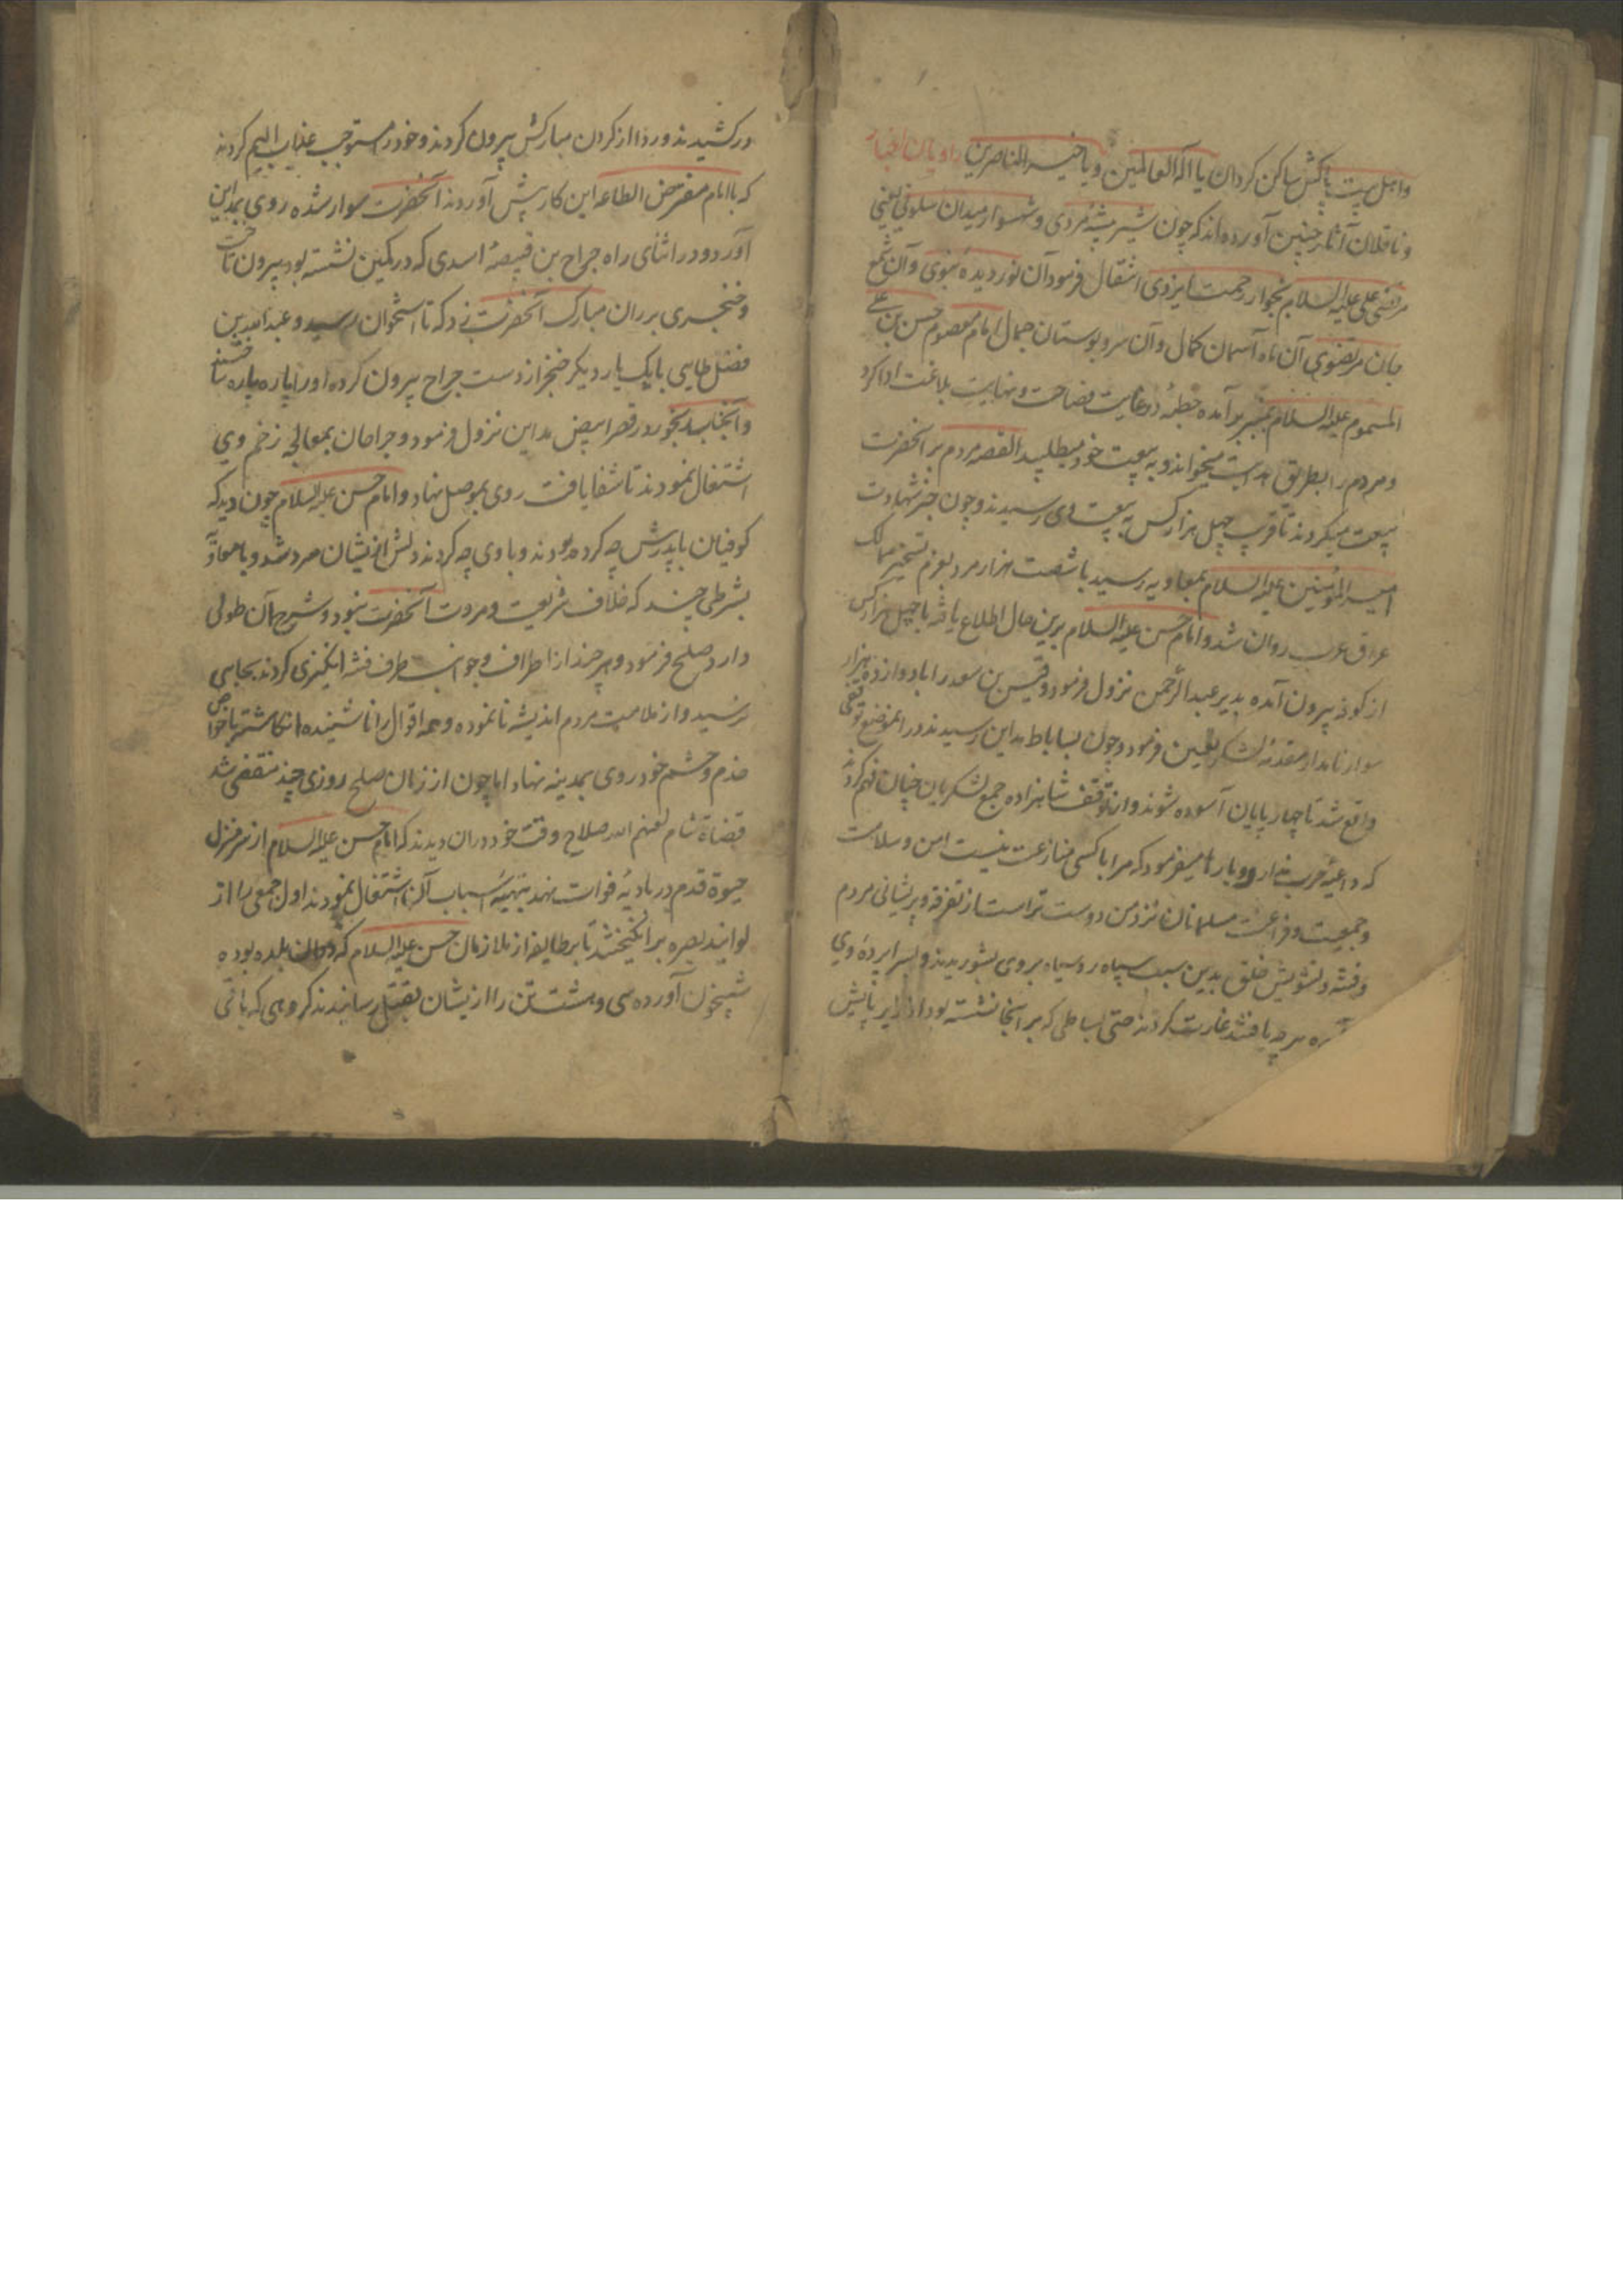 واهل بیت پاکش ساکن کردان یا اله العالمین ویا خیر الناصرین راویان اخبار
وناقلان آثار چنین آورده‌اند که چون شیر بیشهٔ مردی وشهسوار میدان سلونی یعنی
مرتضی علی علیه السلام بجوار رحمت ایزدی انتقال فرمود آن نور دیدهٔ نبوی وآن شمع
جان مرتضوی آن ماه آسمان کمال وآن سرو بوستان جمال امام معصوم حسن بن علی
المسموم علیه السلام بمنبر برآمده خطبهٔ در غایت فصاحت ونهایت بلاغت ادا کرد
ومردم را بطریق هدایت میخواند وبه بیعت خود میطلبید القصه مردم بر آنحضرت
بیعت میکردند تا قریب چهل هزار کس به بیعت وی رسیدند وچون خبر شهادت
امیر المؤمنین علیه السلام بمعاویه رسید با شصت هزار مرد بعزم تسخیر ممالک
عراق عرب روان شد وامام حسن علیه السلام برین حال اطلاع یافته با چهل هزار کس
از کوفه بیرون آمده بدیر عبد الرحمن نزول فرمود وقیس بن سعد را با دوازده هزار
سوار نامدار مقدمهٔ لشکر تعیین فرمود وچون بساباط مداین رسیدند در انموضع توقفی
واقع شد تا چهارپایان آسوده شوند واز توقف شاهزاده جمع لشکریان چنان فهم کردند
که داعیهٔ حرب ندارد وبارها میفرمود که مرا با کسی منازعت نیست امن وسلامت
وجمعیت وفراغت مسلمانان نزد من دوست تر است از تفرقه وپریشانی مردم
وفتنه وتشویش خلق بدین سبب سپاه روسیاه بروی بشوریدند وبسراپردهٔ وی
هر چه یافتند غارت کردند حتی بساطی که بر آنجا نشسته بود از زیر پایش
درکشیدند وردا از کردن مبارکش بیرون کردند وخود را مستوجب عذاب الیم کردند
که با امام مفترض الطاعه این کار پیش آوردند آنحضرت سوار شده روی بمداین
آورد ودر اثنای راه جراح بن قبیصهٔ اسدی که در کمین نشسته بود بیرون تاخت
وخنجری بر ران مبارک آنحضرت زد که تا استخوان رسید وعبد الله بن
فضل طایی با یک یار دیکر خنجر از دست جراح بیرون کرده او را پاره پاره ساختند
وآنجناب رنجور در قصر ابیض مداین نزول فرمود وجراحان بمعالجه زخم وی
اشتغال نمودند تا شفا یافت روی بموصل نهاد وامام حسن علیه السلام چون دید که
کوفیان با پدرش چه کرده بودند وبا وی چه کردند دلش ازیشان سرد شد وبا معاویه
بشرطی چند که خلاف شریعت ومروت آنحضرت نبود وشرح آن طولی
دارد صلح فرمود وهر چند از اطراف وجوانب طرف فتنه انکیزی کردند بجایی
نرسید واز ملامت مردم اندیشه نا نموده وهمه اقوال را نا شنیده انکاشته با خواص
خدم وحشم خود روی بمدینه نهاد اما چون از زمان صلح روزی چند منقضی شد
قضاة شام لعنهم الله صلاح وقت خود دران دیدند که امام حسن علیه السلام از سر منزل
حیوة قدم در بادیهٔ فوات نهد بتهیهٔ اسباب آن اشتغال نمودند اول جمعی را از
لوایند بصره برانکیختند تا بر طایفه از ملازمان حسن علیه السلام که دران بلده بوده
شبیخون آورده سی وهشت تن را ازیشان بقتل رسانیدند کروهی که باقی